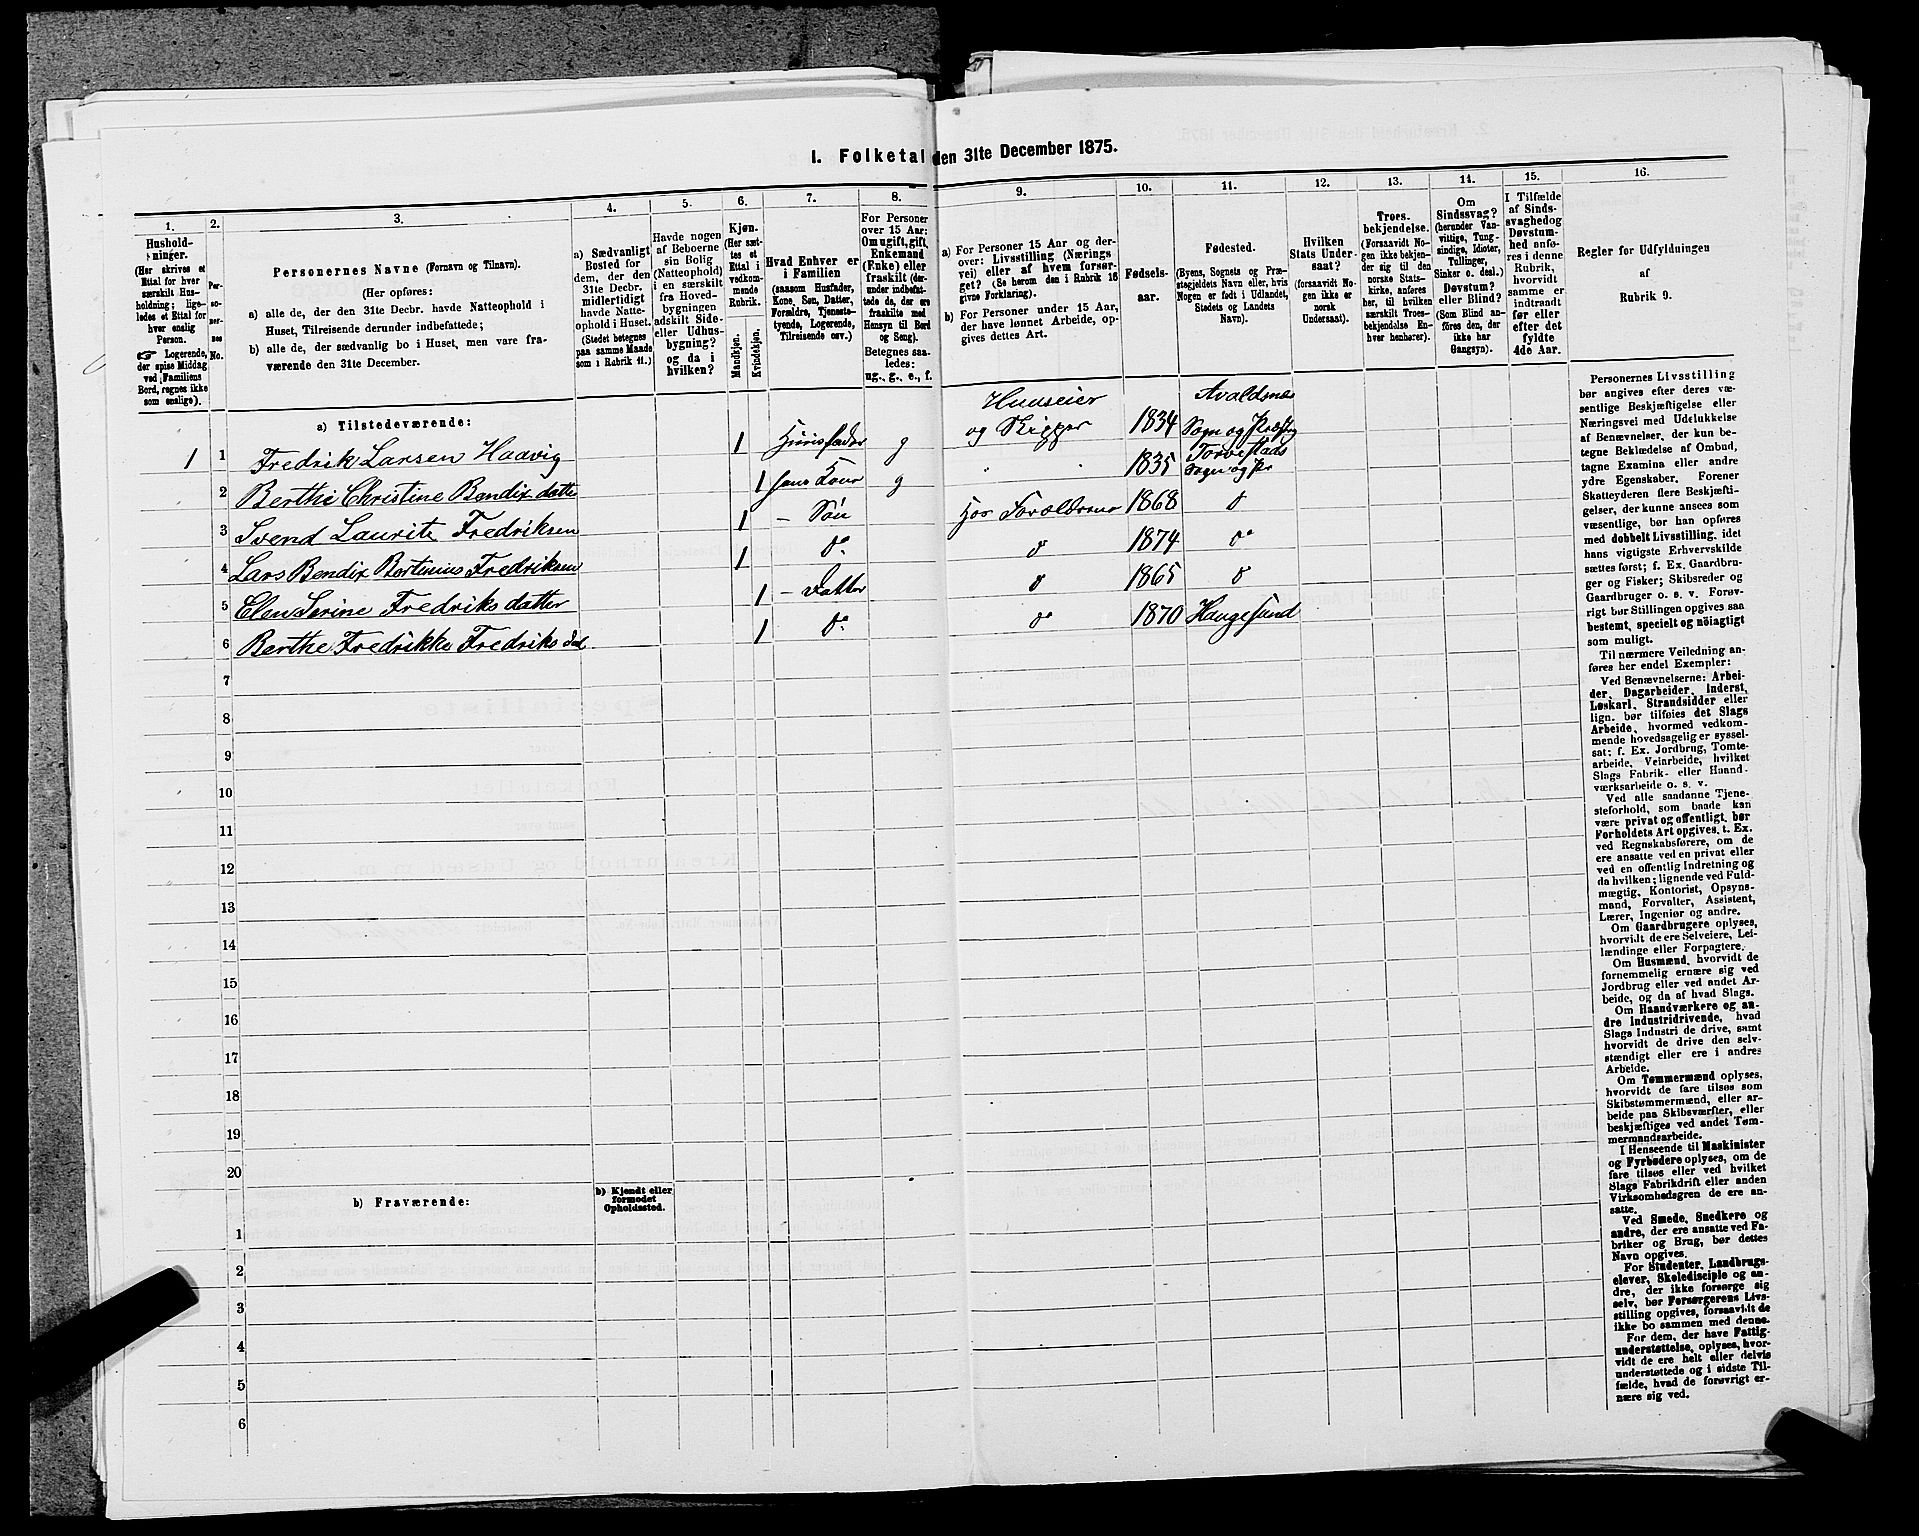 1. Folketal den 31te December 1875.
1. 2. 3. 4. 5. 6. 7. 8. 9. 10. 11. 12. 13. 14. 15. 16.
Hushold-
ninger.
(Her skrives et
Ettal for hver
særskilt Hus-
holdning; lige-
ledes et Ettal for
hver enslig
Person.
☞ Logerende,
der spise Middag
ved Familiens
Bord, regnes ikke
som enslige).
Per-
so-
ner-
nes
No.
Personernes Navne (Fornavn og Tilnavn).
(Her opføres:
a) alle de, der den 31te Decbr. havde Natteophold i
Huset, Tilreisende derunder indbefattede;
b) alle de, der sædvanlig bo i Huset, men vare fra-
værende den 31te December.
a) Sædvanligt
Bosted for
dem, der den
31te Decbr.
midlertidigt
havde Natte-
ophold i Huset.
(Stedet betegnes
paa samme Maade
som i Rubrik 11.)
Havde nogen
af Beboerne
sin Bolig
(Natteophold)
i en særskilt
fra Hoved-
bygningen
adskilt Side-
eller Udhus-
bygning?
og da i
hvilken?
Kjøn.
(Her sæt-
tes et
Ettal i
vedkom-
mende
Rubrik.
Mandkjøn.
Kvindekjøn.
Hvad Enhver er
i Familien
(saasom Husfader,
Kone, Søn, Datter,
Forældre, Tjeneste-
tyende, Logerende,
Tilreisende osv.)
For Personer
over 15 Aar:
Om ugift, gift,
Enkemand
(Enke) eller
fraskilt (der-
under indbefat-
tede de, der ere
fraskilte med
Hensyn til Bord
og Seng).
Betegnes saa-
ledes:
ug., g., e., f.
a) For Personer 15 Aar og der-
over: Livsstilling (Nærings
vei) eller af hvem forsør-
get? (Se herom den i Rubrik 16
givne Forklaring).
b) For Personer under 15 Aar,
der have lønnet Arbeide, op-
gives dettes Art.
Fødsels-
aar.
Fødested.
(Byens, Sognets og Præ-
stegjeldets Navn, eller, hvis
Nogen er født i Udlandet,
Stedets og Landets
Navn).
Hvilken
Stats Under-
saat?
(forsaavidt No-
gen ikke er
norsk
Undersaat).
Troes-
bekjendelse.
(Forsaavidt No-
gen ikke bekjen-
der sig til den
norske Stats-
kirke, anføres
her, til hvilken
særskilt Troes-
bekjendelse En-
hver henhører).
Om
Sindssvag?
(herunder Van-
vittige, Tung-
sindige, Idioter,
Sinker o. desl.)
Døvstum?
eller Blind?
(Som Blind an-
føres den, der
ikke har
Gangsyn).
I Tilfælde
af Sinds-
svaghed og
Døvstum-
hed anfø-
res i denne
Rubrik,
hvorvidt
samme er
indtraadt
før eller
efter det
fyldte
4de Aar.
Regler for Udfyldningen
af
Rubrik 9.
a) Tilstedeværende:
1 1 Fredrik Larsen Haavig 1 Huusfader g Huuseier og Skipper 1834 Avaldsnes Sogn og Præstg
2 Berthe Christine Bendix datter 1 hans Kone g " " 1835 Torvestads Sogn og Pr
3 Svend Laurits Fredriksen 1 - Søn Hos Forældrene 1868 do
4 Lars Bendix Bertinius Fredriksen 1 do do 1874 do
5 Elen Serine Fredriks datter 1 - Datter do 1865 do
6 Berthe Fredrikke Fredriks dat 1 do do 1870 Haugesund
7
8
9
10
11
12
13
14
15
16
17
18
19
20
b) Fraværende:
b) Kjendt eller
formodet
Opholdssted.
1
2
3
4
5
6
Personernes Livsstilling
bør angives efter deres væ-
sentlige Beskjæftigelse eller
Næringsvei med Udelukkelse
af Benævnelser, der kun be-
tegne Beklædelse af Ombud,
tagne Examina eller andre
ydre Egenskaber. Forener
Skatteyderen flere Beskjæfti-
gelser, der kunne ansees som
væsentlige, bør han opføres
med dobbelt Livsstilling, idet
hans vigtigste Erhvervskilde
sættes først; f. Ex. Gaardbru-
ger og Fisker; Skibsreder og
Gaardbruger o. s. v. Forøv-
rigt bør Stillingen opgives saa
bestemt, specielt og nöiagtigt
som muligt.
Til nærmere Veiledning an-
føres her endel Exempler:
Ved Benævnelserne: Arbei-
der, Dagarbeider, Inderst,
Løskarl, Strandsidder eller
lign. bør tilføies det Slags
Arbeide, hvormed vedkom-
mende hovedsagelig er syssel-
sat; f. Ex. Jordbrug, Tomte-
arbeide, Veiarbeide, hvilket
Slags Fabrik- eller Haand-
værksarbeide o. s. v.
Ved alle saadanne Tjene-
steforhold, som baade kan
være privat og offentligt, bør
Forholdets Art opgives, t. Ex.
ved Regnskabsførere, om de
ere ansatte ved en privat eller
ved en offentlig Indretning og
da hvilken; lignende ved Fuld-
mægtig, Kontorist, Opsyns-
mand, Forvalter, Assistent,
Lærer, Ingeniør og andre.
Om Gaardbrugere oplyses,
hvorvidt de ere Selveiere, Lei-
lændinge eller Forpagtere.
Om Husmænd, hvorvidt de
fornemmelig ernære sig ved
Jordbrug eller ved andet Ar-
beide, og da af hvad Slags.
Om Haandværkere og an-
dre Industridrivende, hvad
Slags Industri de drive, samt
hvorvidt de drive den selv-
stændigt eller ere i andres
Arbeide.
Om Tømmermænd oplyses,
hvorvidt de fare tilsøs som
Skibstømmermænd, eller ar-
beide paa Skibsværfter, eller
beskjæftiges ved andet Tøm-
mermandsarbeide.
I Henseende til Maskinister
og Fyrbødere oplyses, om de
fare tilsøs eller ved hvilket
Slags Fabrikdrift eller anden
Virksomhedsgren de ere an-
satte.
Ved Smede, Snedkere og
andre, der ere ansatte ved Fa-
briker og Brug, bør dettes
Navn opgives.
For Studenter, Landbrugs-
elever, Skoledisciple og an-
dre, der ikke forsørge sig
selv, bør Forsørgerens Livs-
stilling opgives, forsaavidt de
ikke bo sammen med denne.
For dem, der have Fattig-
understøttelse, oplyses, hvor-
vidt de ere helt eller delvis
understøttede og i sidste Til-
fælde, hvad de forøvrigt er-
nære sig ved.